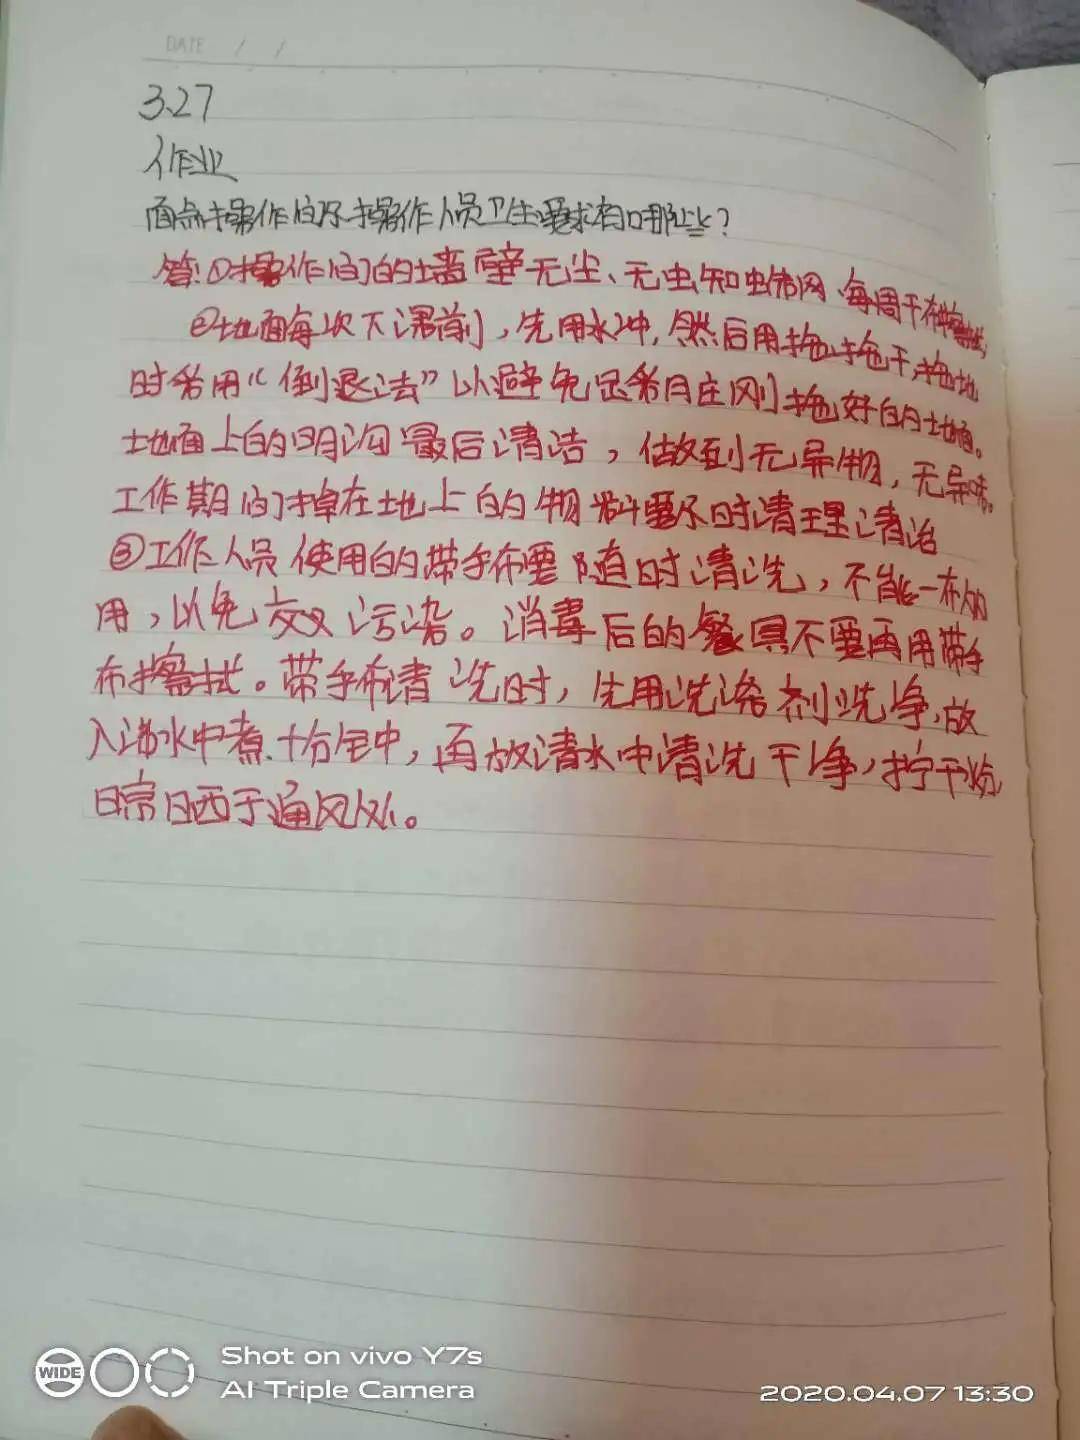 DATE / /
3.27
作业
面点操作间及操作人员卫生要求有哪些？
答：①操作间的墙壁无尘、无虫和蛛网、每周干布擦拭，
②地面每次下课前，先用水冲，然后用拖拖干，拖地
时需用“倒退法”以避免足印刚拖好的地面。
地面上的明沟最后清洁，做到无异物，无异味。
工作期间掉在地上的物料要及时清理清洁
③工作人员使用的带手布要随时清洗，不能一布多
用，以免交叉污染。消毒后的餐具不要再用带手
布擦拭。带手布清洗时，先用洗涤剂洗净，放
入沸水中煮十分钟，再放清水中清洗干净，拧干
晾晒于通风处。
WIDE
Shot on vivo Y7s
AI Triple Camera
2020.04.07 13:30